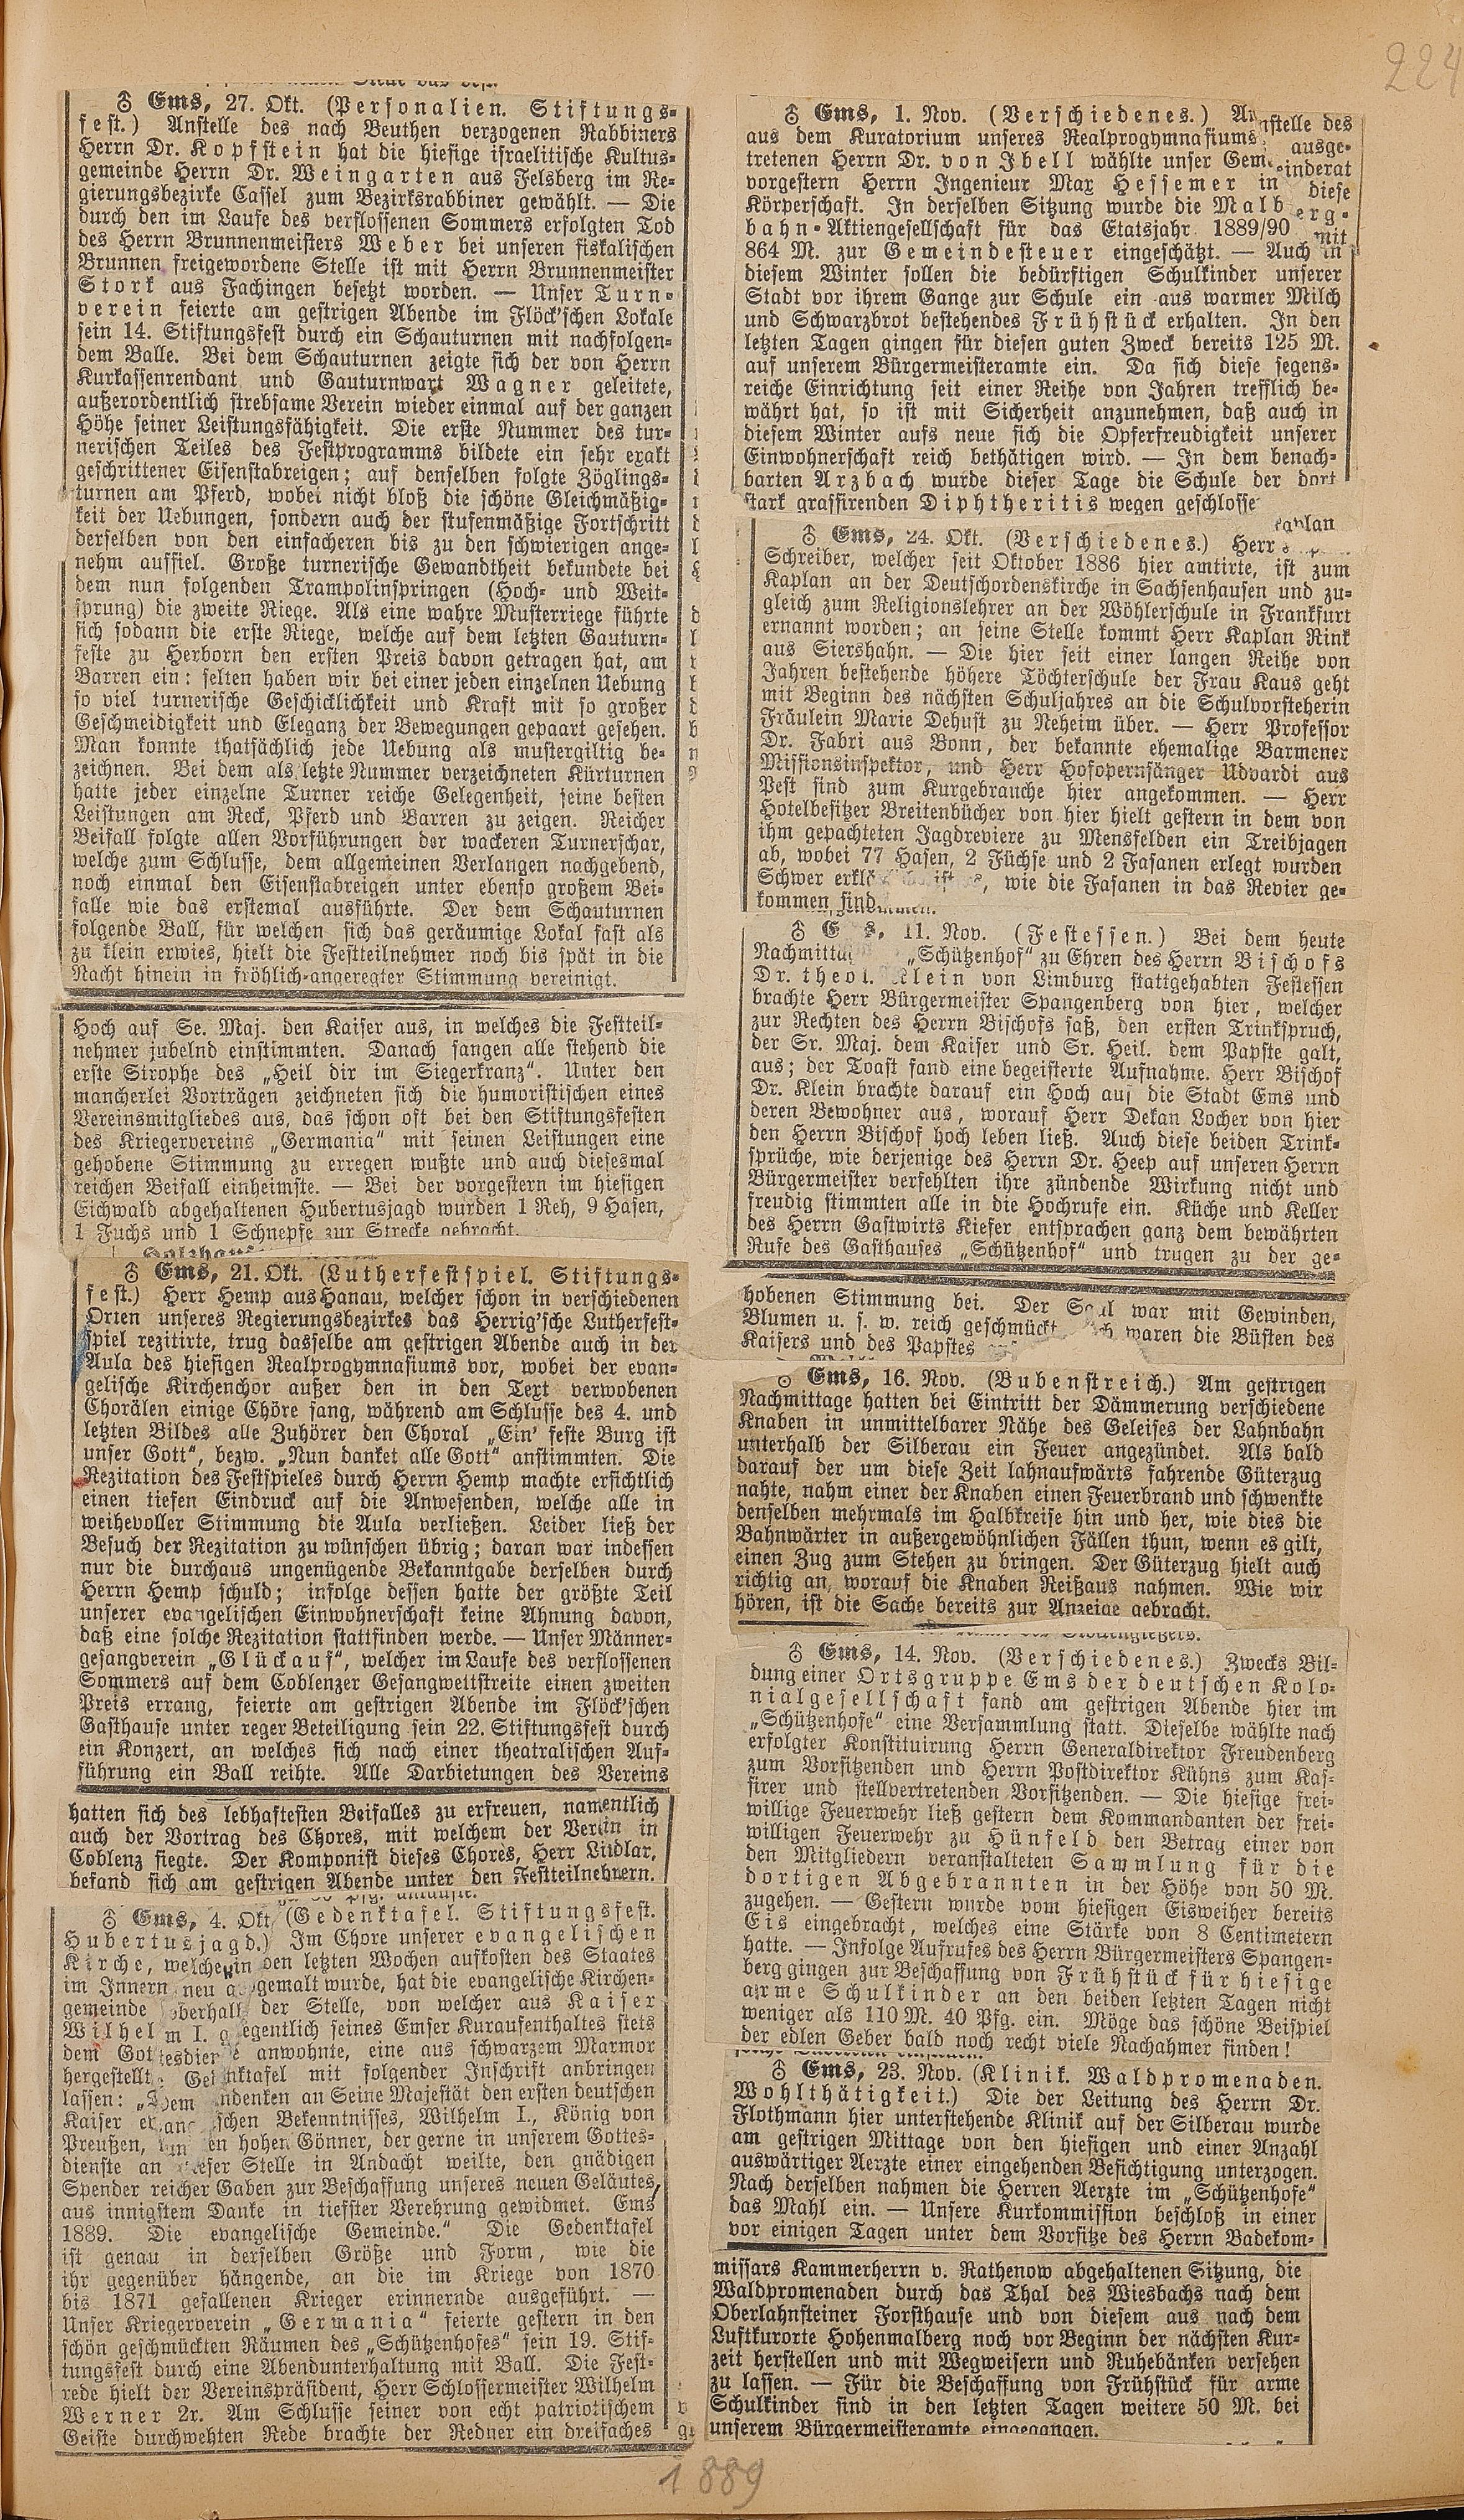 224
♁ Ems, 27. Okt. (Personalien. Stiftungs-
fest.) Anstelle des nach Beuthen verzogenen Rabbiners
Herrn Dr. Kopfstein hat die hiesige israelitische Kultus-
gemeinde Herrn Dr. Weingarten aus Felsberg im Re-
gierungsbezirke Cassel zum Bezirksrabbiner gewählt. — Die
durch den im Laufe des verflossenen Sommers erfolgten Tod
des Herrn Brunnenmeisters Weber bei unseren fiskalischen
Brunnen freigewordene Stelle ist mit Herrn Brunnenmeister
Stork aus Fachingen besetzt worden. — Unser Turn-
verein feierte am gestrigen Abende im Flöck'schen Lokale
sein 14. Stiftungsfest durch ein Schauturnen mit nachfolgen-
dem Balle. Bei dem Schauturnen zeigte sich der von Herrn
Kurkassenrendant und Gauturnwart Wagner geleitete,
außerordentlich strebsame Verein wieder einmal auf der ganzen
Höhe seiner Leistungsfähigkeit. Die erste Nummer des tur-
nerischen Teiles des Festprogramms bildete ein sehr exakt
geschrittener Eisenstabreigen; auf denselben folgte Zöglings-
turnen am Pferd, wobei nicht bloß die schöne Gleichmäßig-
keit der Uebungen, sondern auch der stufenmäßige Fortschritt
derselben von den einfacheren bis zu den schwierigen ange-
nehm auffiel. Große turnerische Gewandtheit bekundete bei
dem nun folgenden Trampolinspringen (Hoch- und Weit-
sprung) die zweite Riege. Als eine wahre Musterriege führte
sich sodann die erste Riege, welche auf dem letzten Gauturn-
feste zu Herborn den ersten Preis davon getragen hat, am
Barren ein: selten haben wir bei einer jeden einzelnen Uebung
so viel turnerische Geschicklichkeit und Kraft mit so großer
Geschmeidigkeit und Eleganz der Bewegungen gepaart gesehen.
Man konnte thatsächlich jede Uebung als mustergiltig be-
zeichnen. Bei dem als letzte Nummer verzeichneten Kürturnen
hatte jeder einzelne Turner reiche Gelegenheit, seine besten
Leistungen am Reck, Pferd und Barren zu zeigen. Reicher
Beifall folgte allen Vorführungen der wackeren Turnerschar,
welche zum Schlusse, dem allgemeinen Verlangen nachgebend,
noch einmal den Eisenstabreigen unter ebenso großem Bei-
falle wie das erstemal ausführte. Der dem Schauturnen
folgende Ball, für welchen sich das geräumige Lokal fast als
zu klein erwies, hielt die Festteilnehmer noch bis spät in die
Nacht hinein in fröhlich-angeregter Stimmung vereinigt.
Hoch auf Se. Maj. den Kaiser aus, in welches die Festteil-
nehmer jubelnd einstimmten. Danach sangen alle stehend die
erste Strophe des „Heil dir im Siegerkranz“. Unter den
mancherlei Vorträgen zeichneten sich die humoristischen eines
Vereinsmitgliedes aus, das schon oft bei den Stiftungsfesten
des Kriegervereins „Germania“ mit seinen Leistungen eine
gehobene Stimmung zu erregen wußte und auch diesesmal
reichen Beifall einheimste. — Bei der vorgestern im hiesigen
Eichwald abgehaltenen Hubertusjagd wurden 1 Reh, 9 Hasen,
1 Fuchs und 1 Schnepfe zur Strecke gebracht.
♁ Ems, 21. Okt. (Lutherfestspiel. Stiftungs-
fest.) Herr Hemp aus Hanau, welcher schon in verschiedenen
Orten unseres Regierungsbezirkes das Herrig'sche Lutherfest-
spiel rezitirte, trug dasselbe am gestrigen Abende auch in der
Aula des hiesigen Realprogymnasiums vor, wobei der evan-
gelische Kirchenchor außer den in den Text verwobenen
Chorälen einige Chöre sang, während am Schlusse des 4. und
letzten Bildes alle Zuhörer den Choral „Ein' feste Burg ist
unser Gott“, bezw. „Nun danket alle Gott“ anstimmten. Die
Rezitation des Festspieles durch Herrn Hemp machte ersichtlich
einen tiefen Eindruck auf die Anwesenden, welche alle in
weihevoller Stimmung die Aula verließen. Leider ließ der
Besuch der Rezitation zu wünschen übrig; daran war indessen
nur die durchaus ungenügende Bekanntgabe derselben durch
Herrn Hemp schuld; infolge dessen hatte der größte Teil
unserer evangelischen Einwohnerschaft keine Ahnung davon,
daß eine solche Rezitation stattfinden werde. — Unser Männer-
gesangverein „Glückauf“, welcher im Laufe des verflossenen
Sommers auf dem Coblenzer Gesangwettstreite einen zweiten
Preis errang, feierte am gestrigen Abende im Flöck'schen
Gasthause unter reger Beteiligung sein 22. Stiftungsfest durch
ein Konzert, an welches sich nach einer theatralischen Auf-
führung ein Ball reihte. Alle Darbietungen des Vereins
hatten sich des lebhaftesten Beifalles zu erfreuen, namentlich
auch der Vortrag des Chores, mit welchem der Verein in
Coblenz siegte. Der Komponist dieses Chores, Herr Lindlar,
befand sich am gestrigen Abende unter den Festteilnehmern.
♁ Ems, 4. Okt. (Gedenktafel. Stiftungsfest.
Hubertusjagd.) Im Chore unserer evangelischen
Kirche, welche in den letzten Wochen aufkosten des Staates
im Innern neu gemalt wurde, hat die evangelische Kirchen-
gemeinde oberhalb der Stelle, von welcher aus Kaiser
Wilhelm I. gelegentlich seines Emser Kuraufenthaltes stets
dem Gottesdienste anwohnte, eine aus schwarzem Marmor
hergestellte Gedenktafel mit folgender Inschrift anbringen
lassen: „Dem Andenken an Seine Majestät den ersten deutschen
Kaiser evangelischen Bekenntnisses, Wilhelm I., König von
Preußen, en hohen Gönner, der gerne in unserem Gottes-
dienste an dieser Stelle in Andacht weilte, den gnädigen
Spender reicher Gaben zur Beschaffung unseres neuen Geläutes,
aus innigstem Danke in tiefster Verehrung gewidmet. Ems
1889. Die evangelische Gemeinde.“ Die Gedenktafel
ist genau in derselben Größe und Form, wie die
ihr gegenüber hängende, an die im Kriege von 1870
bis 1871 gefallenen Krieger erinnernde ausgeführt. —
Unser Kriegerverein „Germania“ feierte gestern in den
schön geschmückten Räumen des „Schützenhofes“ sein 19. Stif-
tungsfest durch eine Abendunterhaltung mit Ball. Die Fest-
rede hielt der Vereinspräsident, Herr Schlossermeister Wilhelm
Werner 2r. Am Schlusse seiner von echt patriotischem
Geiste durchwehten Rede brachte der Redner ein dreifaches
♁ Ems, 1. Nov. (Verschiedenes.) Anstelle des
aus dem Kuratorium unseres Realprogymnasiums ausge-
tretenen Herrn Dr. von Ibell wählte unser Gemeinderat
vorgestern Herrn Ingenieur Max Hessemer in diese
Körperschaft. In derselben Sitzung wurde die Malberg-
bahn-Aktiengesellschaft für das Etatsjahr 1889/90 mit
864 M. zur Gemeindesteuer eingeschätzt. — Auch in
diesem Winter sollen die bedürftigen Schulkinder unserer
Stadt vor ihrem Gange zur Schule ein aus warmer Milch
und Schwarzbrot bestehendes Frühstück erhalten. In den
letzten Tagen gingen für diesen guten Zweck bereits 125 M.
auf unserem Bürgermeisteramte ein. Da sich diese segens-
reiche Einrichtung seit einer Reihe von Jahren trefflich be-
währt hat, so ist mit Sicherheit anzunehmen, daß auch in
diesem Winter aufs neue sich die Opferfreudigkeit unserer
Einwohnerschaft reich bethätigen wird. — In dem benach-
barten Arzbach wurde dieser Tage die Schule der dort
stark grassirenden Diphtheritis wegen geschlosse
♁ Ems, 24. Okt. (Verschiedenes.) Herr Kaplan
Schreiber, welcher seit Oktober 1886 hier amtirte, ist zum
Kaplan an der Deutschordenskirche in Sachsenhausen und zu-
gleich zum Religionslehrer an der Wöhlerschule in Frankfurt
ernannt worden; an seine Stelle kommt Herr Kaplan Rink
aus Siershahn. — Die hier seit einer langen Reihe von
Jahren bestehende höhere Töchterschule der Frau Kaus geht
mit Beginn des nächsten Schuljahres an die Schulvorsteherin
Fräulein Marie Dehust zu Neheim über. — Herr Professor
Dr. Fabri aus Bonn, der bekannte ehemalige Barmener
Missionsinspektor, und Herr Hofopernsänger Udvardi aus
Pest sind zum Kurgebrauche hier angekommen. — Herr
Hotelbesitzer Breitenbücher von hier hielt gestern in dem von
ihm gepachteten Jagdreviere zu Mensfelden ein Treibjagen
ab, wobei 77 Hasen, 2 Füchse und 2 Fasanen erlegt wurden
Schwer erklärlich ist es, wie die Fasanen in das Revier ge-
kommen sind.
♁ Ems, 11. Nov. (Festessen.) Bei dem heute
Nachmittag „Schützenhof“ zu Ehren des Herrn Bischofs
Dr. theol. Klein von Limburg stattgehabten Festessen
brachte Herr Bürgermeister Spangenberg von hier, welcher
zur Rechten des Herrn Bischofs saß, den ersten Trinkspruch,
der Sr. Maj. dem Kaiser und Sr. Heil. dem Papste galt,
aus; der Toast fand eine begeisterte Aufnahme. Herr Bischof
Dr. Klein brachte darauf ein Hoch auf die Stadt Ems und
deren Bewohner aus, worauf Herr Dekan Locher von hier
den Herrn Bischof hoch leben ließ. Auch diese beiden Trink-
sprüche, wie derjenige des Herrn Dr. Heep auf unseren Herrn
Bürgermeister verfehlten ihre zündende Wirkung nicht und
freudig stimmten alle in die Hochrufe ein. Küche und Keller
des Herrn Gastwirts Kiefer entsprachen ganz dem bewährten
Rufe des Gasthauses „Schützenhof“ und trugen zu der ge-
hobenen Stimmung bei. Der Saal war mit Gewinden,
Blumen u. s. w. reich geschmückt waren die Büsten des
Kaisers und des Papstes
♁ Ems, 16. Nov. (Bubenstreich.) Am gestrigen
Nachmittage hatten bei Eintritt der Dämmerung verschiedene
Knaben in unmittelbarer Nähe des Geleises der Lahnbahn
unterhalb der Silberau ein Feuer angezündet. Als bald
darauf der um diese Zeit lahnaufwärts fahrende Güterzug
nahte, nahm einer der Knaben einen Feuerbrand und schwenkte
denselben mehrmals im Halbkreise hin und her, wie dies die
Bahnwärter in außergewöhnlichen Fällen thun, wenn es gilt,
einen Zug zum Stehen zu bringen. Der Güterzug hielt auch
richtig an, worauf die Knaben Reißaus nahmen. Wie wir
hören, ist die Sache bereits zur Anzeige gebracht.
♁ Ems, 14. Nov. (Verschiedenes.) Zwecks Bil-
dung einer Ortsgruppe Ems der deutschen Kolo-
nialgesellschaft fand am gestrigen Abende hier im
„Schützenhofe“ eine Versammlung statt. Dieselbe wählte nach
erfolgter Konstituirung Herrn Generaldirektor Freudenberg
zum Vorsitzenden und Herrn Postdirektor Kühns zum Kas-
sirer und stellvertretenden Vorsitzenden. — Die hiesige frei-
willige Feuerwehr ließ gestern dem Kommandanten der frei-
willigen Feuerwehr zu Hünfeld den Betrag einer von
den Mitgliedern veranstalteten Sammlung für die
dortigen Abgebrannten in der Höhe von 50 M.
zugehen. — Gestern wurde vom hiesigen Eisweiher bereits
Eis eingebracht, welches eine Stärke von 8 Centimetern
hatte. — Infolge Aufrufes des Herrn Bürgermeisters Spangen-
berg gingen zur Beschaffung von Frühstück für hiesige
arme Schulkinder an den beiden letzten Tagen nicht
weniger als 110 M. 40 Pfg. ein. Möge das schöne Beispiel
der edlen Geber bald noch recht viele Nachahmer finden!
♁ Ems, 23. Nov. (Klinik. Waldpromenaden.
Wohlthätigkeit.) Die der Leitung des Herrn Dr.
Flothmann hier unterstehende Klinik auf der Silberau wurde
am gestrigen Mittage von den hiesigen und einer Anzahl
auswärtiger Aerzte einer eingehenden Besichtigung unterzogen.
Nach derselben nahmen die Herren Aerzte im „Schützenhofe“
das Mahl ein. — Unsere Kurkommission beschloß in einer
vor einigen Tagen unter dem Vorsitze des Herrn Badekom-
missars Kammerherrn v. Rathenow abgehaltenen Sitzung, die
Waldpromenaden durch das Thal des Wiesbachs nach dem
Oberlahnsteiner Forsthause und von diesem aus nach dem
Luftkurorte Hohenmalberg noch vor Beginn der nächsten Kur-
zeit herstellen und mit Wegweisern und Ruhebänken versehen
zu lassen. — Für die Beschaffung von Frühstück für arme
Schulkinder sind in den letzten Tagen weitere 50 M. bei
unserem Bürgermeisteramte eingegangen.
1889